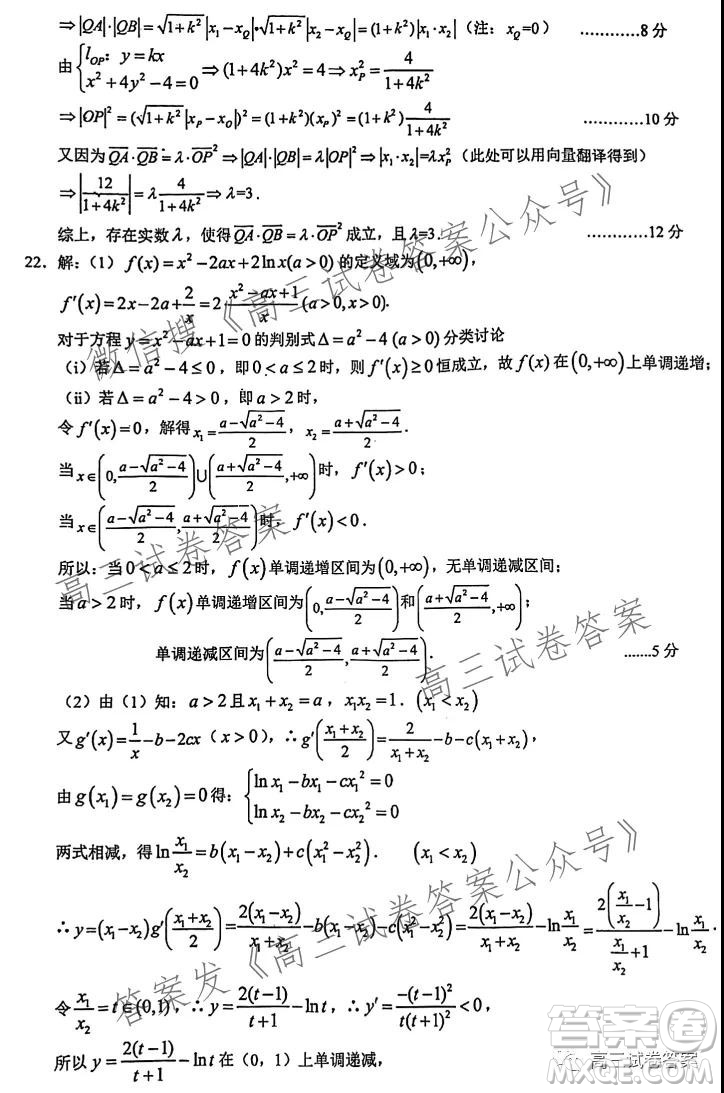 ⇒|QA|·|QB|=√(1+k²)|x₁-x_Q|·√(1+k²)|x₂-x_Q|=(1+k²)|x₁·x₂|（注：x_Q=0） …………8分
由{l_OP：y=kx
x²+4y²-4=0 ⇒(1+4k²)x²=4⇒x_P²=4/(1+4k²)
⇒|OP|²=(√(1+k²)|x_P-x_O|)²=(1+k²)(x_P)²=(1+k²)4/(1+4k²) …………10分
又因为QA·QB=λ·OP²⇒|QA|·|QB|=λ|OP|²⇒|x₁·x₂|=λx_P²（此处可以用向量翻译得到）
⇒|12/(1+4k²)|=λ4/(1+4k²)⇒λ=3.
综上，存在实数λ，使得QA·QB=λ·OP²成立，且λ=3. …………12分
22．解：（1）f(x)=x²-2ax+2lnx(a>0)的定义域为(0,+∞)，
f′(x)=2x-2a+2/x=2(x²-ax+1)/x(a>0,x>0).
对于方程y=x²-ax+1=0的判别式Δ=a²-4(a>0)分类讨论
（i）若Δ=a²-4≤0，即0<a≤2时，则f′(x)≥0恒成立，故f(x)在(0,+∞)上单调递增；
（ii）若Δ=a²-4>0，即a>2时，
令f′(x)=0，解得x₁=(a-√(a²-4))/2，x₂=(a+√(a²-4))/2.
当x∈(0,(a-√(a²-4))/2)∪((a+√(a²-4))/2,+∞)时，f′(x)>0；
当x∈((a-√(a²-4))/2,(a+√(a²-4))/2)时，f′(x)<0.
所以：当0<a≤2时，f(x)单调递增区间为(0,+∞)，无单调递减区间；
当a>2时，f(x)单调递增区间为(0,(a-√(a²-4))/2)和((a+√(a²-4))/2,+∞)；
单调递减区间为((a-√(a²-4))/2,(a+√(a²-4))/2). .......5分
（2）由（1）知：a>2且x₁+x₂=a，x₁x₂=1.(x₁<x₂)
又g′(x)=1/x-b-2cx（x>0），∴g′((x₁+x₂)/2)=2/(x₁+x₂)-b-c(x₁+x₂)，
由g(x₁)=g(x₂)=0得：{lnx₁-bx₁-cx₁²=0
lnx₂-bx₂-cx₂²=0
两式相减，得ln(x₁/x₂)=b(x₁-x₂)+c(x₁²-x₂²). (x₁<x₂)
∴y=(x₁-x₂)g′((x₁+x₂)/2)=2(x₁-x₂)/(x₁+x₂)-b(x₁-x₂)-c(x₁²-x₂²)=2(x₁-x₂)/(x₁+x₂)-ln(x₁/x₂)=2(x₁/x₂-1)/(x₁/x₂+1)-ln(x₁/x₂).
令x₁/x₂=t∈(0,1)，∴y=2(t-1)/(t+1)-lnt，∴y′=-(t-1)²/(t(t+1)²)<0，
所以y=2(t-1)/(t+1)-lnt在（0，1）上单调递减，
微信搜《高三试卷答案公众号》
高三试卷答案
高三试卷答案
答案发《高三试卷答案公众号》
高三试卷答案
答案圈
MXQE.COM